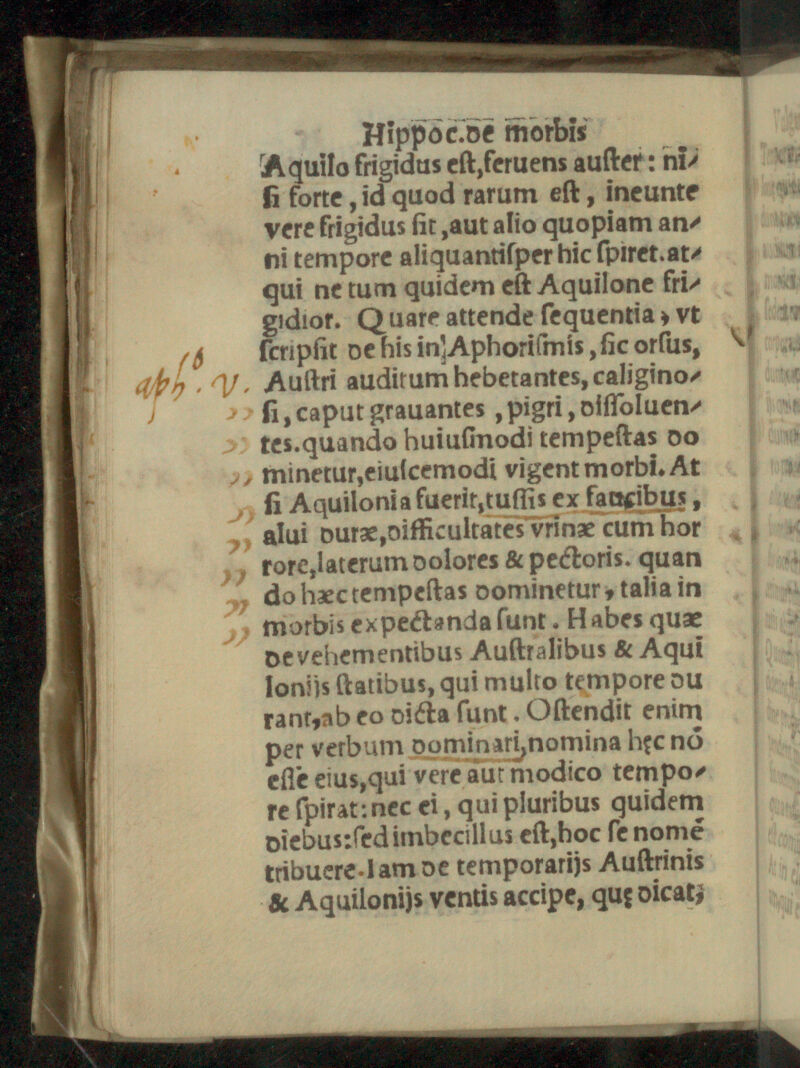 Hippoc. de morbis
Aquilo frigidus eſt, feruens auſter: ni⸗
ſi forte, id quod rarum eſt, ineunte
vere frigidus ſit, aut alio quopiam an⸗
ni tempore aliquantiſper hic ſpiret. at⸗
qui ne tum quidem eſt Aquilone fri⸗
gidior. Quare attende ſequentia, vt
ſcripſit de his in Aphoriſmis, ſic orſus,
aph. 16 V. Auſtri auditum hebetantes, caligino⸗
ſi, caput grauantes, pigri, diſſoluen⸗
tes. quando huiuſmodi tempeſtas do
minetur, eiuſcemodi vigent morbi. At
ſi Aquilonia fuerit, tuſſis ex faucibus,
alui duræ, difficultates vrinæ cum hor
rore, laterum dolores & pectoris. quan
do hæc tempeſtas dominetur, talia in
morbis expectanda ſunt. Habes quæ
de vehementibus Auſtralibus & Aqui
lonijs ſtatibus, qui multo tempore du
rant, ab eo dicta ſunt. Oſtendit enim
per verbum dominari, nomina hęc nō
eſſe eius, qui vere aut modico tempo⸗
re ſpirat: nec ei, qui pluribus quidem
diebus: ſed imbecillus eſt, hoc ſe nomē
tribuere. Iam de temporarijs Auſtrinis
& Aquilonijs ventis accipe, quę dicat;